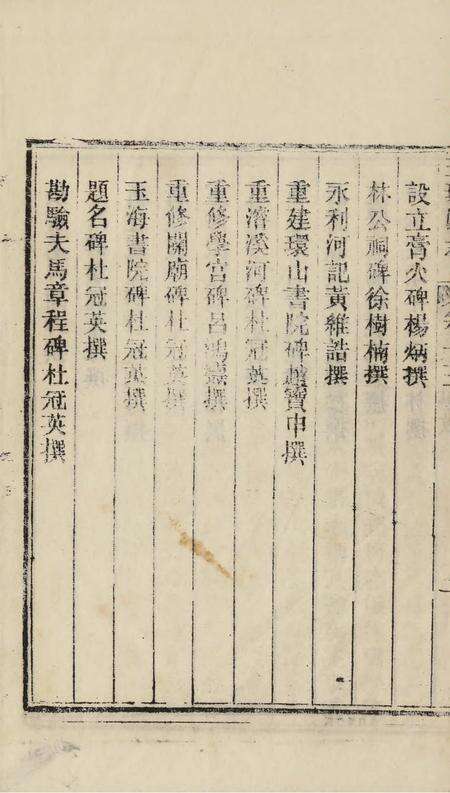 設立膏火碑楊炳撰
林公祠碑徐樹楠撰
永利河記黃維誥撰
重建環山書院碑趙寶中撰
重濬溪河碑杜冠英撰
重修學宮碑呂鴻燾撰
重修關廟碑杜冠英撰
玉海書院碑杜冠英撰
題名碑杜冠英撰
勘驗夫馬章程碑杜冠英撰